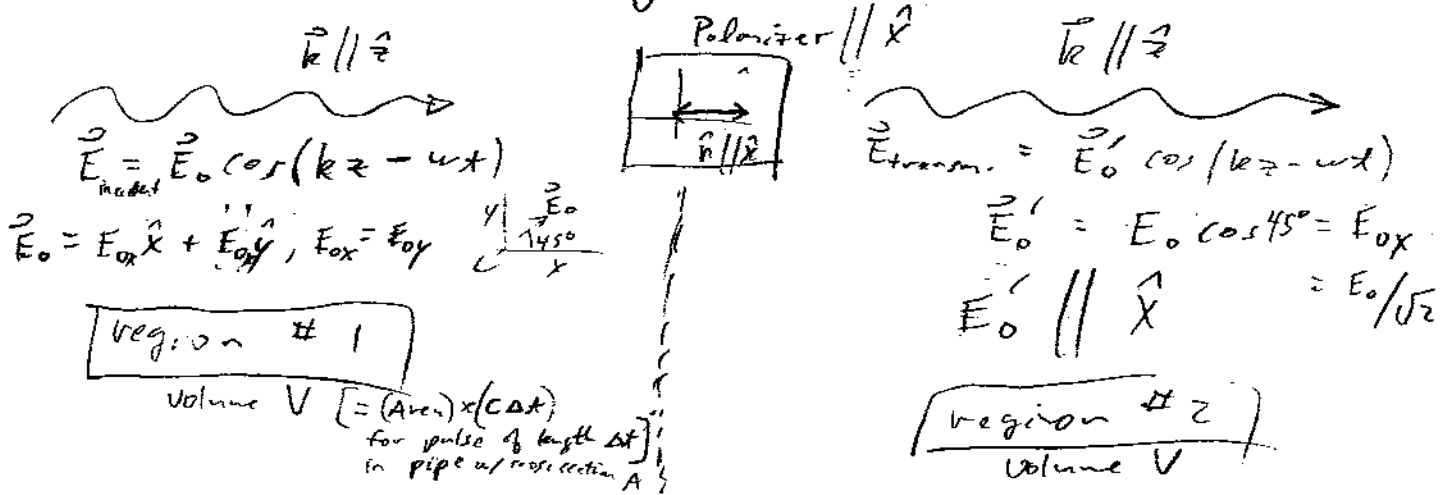 k⃗ // ẑ
E⃗incident = E⃗₀ cos(kz - ωt)
E⃗₀ = E₀ₓ x̂ + E₀y ŷ, E₀ₓ = E₀y
y E⃗₀
45°
x
region # 1
volume V [= (Area) x (cΔt)
for pulse of length Δt]
in pipe w/ cross section A
Polarizer // x̂
n̂ // x̂
k⃗ // ẑ
E⃗transm. = E⃗₀′ cos(kz - ωt)
E⃗₀′ = E₀ cos45° = E₀ₓ
= E₀/√2
E₀′ // x̂
region # 2
volume V